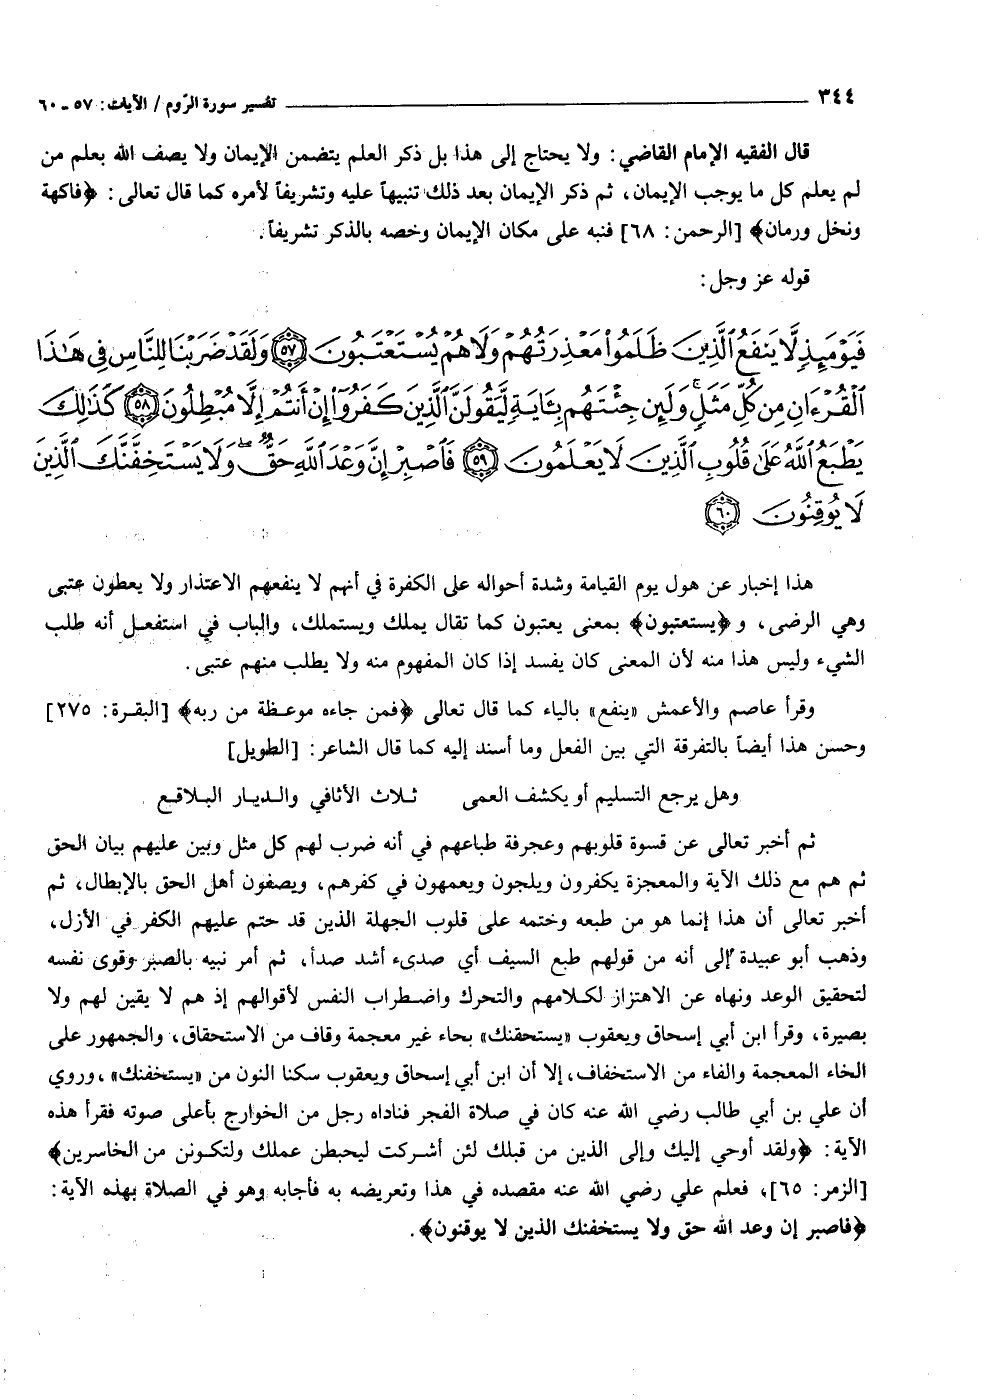 ٣٤٤ تفسير سورة الرّوم / الآيات: ٥٧ ـ ٦٠
قال الفقيه الإمام القاضي: ولا يحتاج إلى هذا بل ذكر العلم يتضمن الإيمان ولا يصف الله بعلم من
لم يعلم كل ما يوجب الإيمان، ثم ذكر الإيمان بعد ذلك تنبيهاً عليه وتشريفاً لأمره كما قال تعالى: ﴿فاكهة
ونخل ورمان﴾ [الرحمن: ٦٨] فنبه على مكان الإيمان وخصه بالذكر تشريفاً.
قوله عز وجل:
فَيَوْمَئِذٍ لَّا يَنفَعُ ٱلَّذِينَ ظَلَمُوا۟ مَعْذِرَتُهُمْ وَلَا هُمْ يُسْتَعْتَبُونَ ﴿٥٧﴾ وَلَقَدْ ضَرَبْنَا لِلنَّاسِ فِى هَـٰذَا
ٱلْقُرْءَانِ مِن كُلِّ مَثَلٍ ۚ وَلَئِن جِئْتَهُم بِـَٔايَةٍ لَّيَقُولَنَّ ٱلَّذِينَ كَفَرُوٓا۟ إِنْ أَنتُمْ إِلَّا مُبْطِلُونَ ﴿٥٨﴾ كَذَٰلِكَ
يَطْبَعُ ٱللَّهُ عَلَىٰ قُلُوبِ ٱلَّذِينَ لَا يَعْلَمُونَ ﴿٥٩﴾ فَٱصْبِرْ إِنَّ وَعْدَ ٱللَّهِ حَقٌّ ۖ وَلَا يَسْتَخِفَّنَّكَ ٱلَّذِينَ
لَا يُوقِنُونَ ﴿٦٠﴾
هذا إخبار عن هول يوم القيامة وشدة أحواله على الكفرة في أنهم لا ينفعهم الاعتذار ولا يعطون عتبى
وهي الرضى، و﴿يستعتبون﴾ بمعنى يعتبون كما تقال يملك ويستملك، والباب في استفعل أنه طلب
الشيء وليس هذا منه لأن المعنى كان يفسد إذا كان المفهوم منه ولا يطلب منهم عتبى.
وقرأ عاصم والأعمش «ينفع» بالياء كما قال تعالى ﴿فمن جاءه موعظة من ربه﴾ [البقرة: ٢٧٥]
وحسن هذا أيضاً بالتفرقة التي بين الفعل وما أسند إليه كما قال الشاعر: [الطويل]
وهل يرجع التسليم أو يكشف العمى ثلاث الأثافي والديار البلاقع
ثم أخبر تعالى عن قسوة قلوبهم وعجرفة طباعهم في أنه ضرب لهم كل مثل وبين عليهم بيان الحق
ثم هم مع ذلك الآية والمعجزة يكفرون ويلجون ويعمهون في كفرهم، ويصفون أهل الحق بالإبطال، ثم
أخبر تعالى أن هذا إنما هو من طبعه وختمه على قلوب الجهلة الذين قد حتم عليهم الكفر في الأزل،
وذهب أبو عبيدة إلى أنه من قولهم طبع السيف أي صدىء أشد صدأ، ثم أمر نبيه بالصبر وقوى نفسه
لتحقيق الوعد ونهاه عن الاهتزاز لكلامهم والتحرك واضطراب النفس لأقوالهم إذ هم لا يقين لهم ولا
بصيرة، وقرأ ابن أبي إسحاق ويعقوب «يستحقنك» بحاء غير معجمة وقاف من الاستحقاق، والجمهور على
الخاء المعجمة والفاء من الاستخفاف، إلا أن ابن أبي إسحاق ويعقوب سكنا النون من «يستخفنك»، وروي
أن علي بن أبي طالب رضي الله عنه كان في صلاة الفجر فناداه رجل من الخوارج بأعلى صوته فقرأ هذه
الآية: ﴿ولقد أوحي إليك وإلى الذين من قبلك لئن أشركت ليحبطن عملك ولتكونن من الخاسرين﴾
[الزمر: ٦٥]، فعلم علي رضي الله عنه مقصده في هذا وتعريضه به فأجابه وهو في الصلاة بهذه الآية:
﴿فاصبر إن وعد الله حق ولا يستخفنك الذين لا يوقنون﴾.